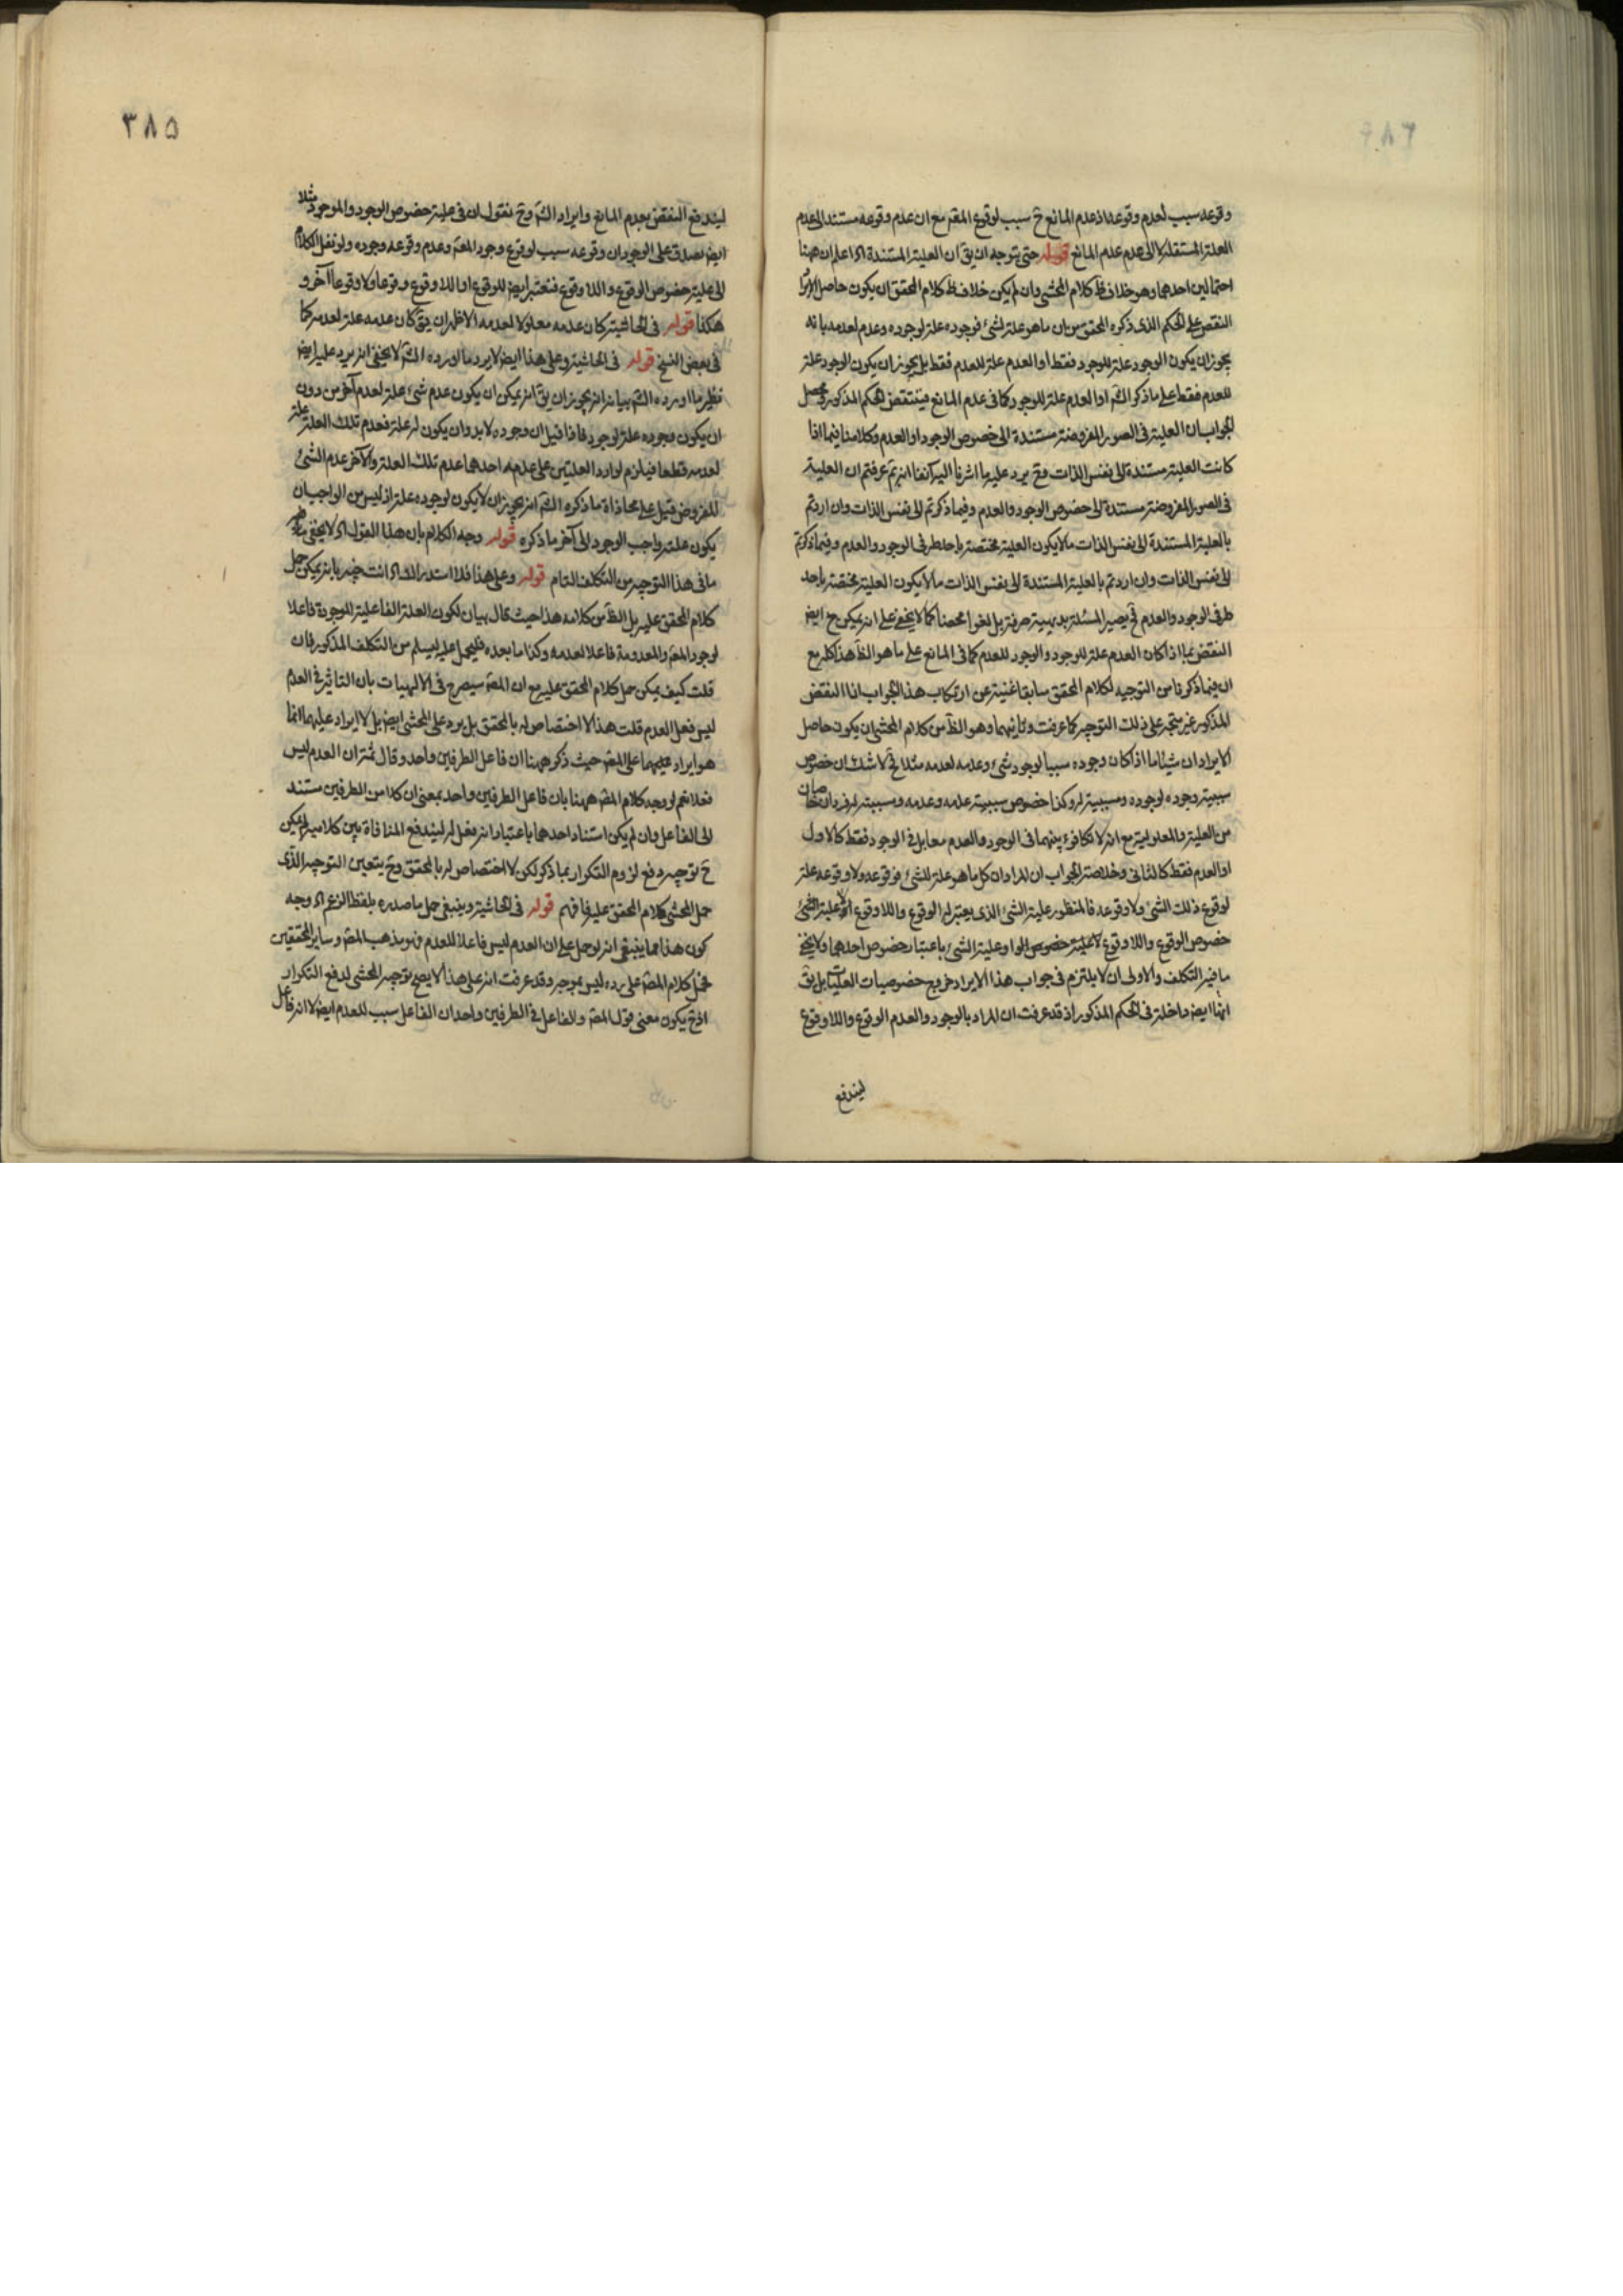 وقوعه سبب لعدم وقوعه اذ عدم المانع ح سبب لوقوع المعه مع ان عدم وقوعه مستند الى عدم
العلة المستقلة لا الى عدم عدم المانع قوله حتى يتوجه ان يق ان العلية المستندة اه اعلم ان ههنا
احتمالين احدهما وهو خلاف ظ كلام المحشى وان لم يكن خلاف ظ كلام المحقق ان يكون حاصل الايراد
النقض على الحكم الذى ذكره المحقق من ان ما هو علة لشئ فوجوده علة لوجوده وعدمه لعدمه بانه
يجوز ان يكون الوجود علة للوجود فقط او العدم علة للعدم فقط بل يجوز ان يكون الوجود علة
للعدم فقط على ما ذكر الش او العدم علة للوجود كما فى عدم المانع فينتقض الحكم المذكور ومحصل
الجواب ان العلية فى الصور المفروضة مستندة الى خصوص الوجود او العدم وكلامنا فيما اذا
كانت العلية مستندة الى نفس الذات وح يرد عليه ما اشرنا اليه آنفا انه بم عرفتم ان العلية
فى الصور المفروضة مستندة الى خصوص الوجود والعدم وفيما ذكرتم الى نفس الذات وان اردتم
بالعلية المستندة الى نفس الذات ما لا يكون العلية مختصة باحد طرفى الوجود والعدم وفيما ذكرتم
الى نفس الذات وان اردتم بالعلية المستندة الى نفس الذات ما لا يكون العلية مختصة باحد
طرفى الوجود والعدم فح يصير المسئلة بديهية صرفة بل لغوا محضا كما لا يخفى على انه يمكن ح ايض
النقض بما اذا كان العدم علة للوجود والوجود للعدم كما فى المانع على ما هو الظ هذا كله مع
ان فيما ذكرنا من التوجيه لكلام المحقق سابقا غنية عن ارتكاب هذا الجواب اذ النقض
المذكور غير متجه على ذلك التوجيه كما عرفت وثانيهما وهو الظ من كلام المحشى ان يكون حاصل
الايراد ان شيئا ما اذا كان وجوده سببا لوجود شئ وعدمه لعدمه مثلا فح لا شك ان خصوص
سببية وجوده لوجوده ومسببيته له وكذا خصوص سببية عدمه وعدمه ومسببيته له فردان خاصان
من العلية والمعلولية مع انه لا تكافؤ بينهما فى الوجود والعدم معا بل فى الوجود فقط كالاول
او العدم فقط كالثانى وخلاصة الجواب ان المراد ان كل ما هو علة للشئ فوقوعه ولا وقوعه علة
لوقوع ذلك الشئ ولا وقوعه فالمنظور علية الشئ الذى يعتبر له الوقوع واللا وقوع لا علية الشئ
خصوص الوقوع واللا وقوع لا علية خصوص الوا وعلية الشئ باعتبار خصوص احدهما ولا يخفى
ما فيه التكلف والاولى ان لا يلتزم فى جواب هذا الايراد خروج خصوصيات العليات بل يق
انها ايض داخلة فى الحكم المذكور اذ قد عرفت ان المراد بالوجود والعدم الوقوع واللا وقوع
ليندفع
٣٨٥
ليندفع النقض بعدم المانع وايراد الش وح نقول ان فى علية خصوص الوجود والموجود مثلا
ايض يصدق على الوجود ان وقوعه سبب لوقوع وجود المعه وعدم وقوعه وجوده ولو نقل الكلام
الى علية خصوص الوقوع واللا وقوع فنعتبر ايض للوقوع او اللا وقوع وقوعا ولا وقوعا آخر و
هكذا قوله فى الحاشية كان عدمه معلولا لعدمه الاظهر ان يق كان عدمه علة لعدمه كما
فى بعض النسخ قوله فى الحاشية وعلى هذا ايض لا يرد ما اورده الش لا يخفى انه يرد عليه ايض
نظير ما اورده الش بيانه انه يجوز ان يق انه يمكن ان يكون عدم شئ علة لعدم آخر من دون
ان يكون وجوده علة لوجود فاذا قيل ان وجوده لا بد وان يكون له علة فعدم تلك العلة علة
لعدمه قطعا فيلزم توارد العلتين على عدمه احدهما عدم تلك العلة والآخر عدم الشئ
المفروض قيل على محاذاة ما ذكره الش انه يجوز ان لا يكون لوجوده علة اذ ليس من الواجب ان
يكون علته واجب الوجود الى آخر ما ذكره قوله وجه الكلام بان هذا القول اه لا يخفى
ما فى هذا التوجيه من التكلف التام قوله وعلى هذا فلا استدراك اه انت خبير بانه يمكن حمل
كلام المحقق عليه بل الظ من كلامه هذا حيث قال بيان لكون العلة الفاعلية الموجودة فاعلا
لوجود المعه والمعدومة فاعلا لعدمه وكذا ما بعده فليحمل عليه ليسلم من التكلف المذكور فان
قلت كيف يمكن حمل كلام المحقق عليه مع ان المص سيصرح فى الالهيات بان التاثير فى العدم
ليس فعل العدم قلت هذا لا اختصاص له بالمحقق بل يرد على المحشى ايض بل لا ايراد عليهما انما
هو ايراد عليهما على المص حيث ذكر ههنا ان فاعل الطرفين واحد وقال ثمة ان العدم ليس
فعلا نعم لو وجه كلام المص ههنا بان فاعل الطرفين واحد بمعنى ان كلا من الطرفين مستند
الى الفاعل وان لم يكن استناد احدهما باعتبار انه فعل له ليندفع المنافاة بين كلاميه لم يكن
ح توجيه دفع لزوم التكرار بما ذكر لكن لا اختصاص له بالمحقق وح يتعين التوجيه الذى
حمل المحشى كلام المحقق عليه فافهم قوله فى الحاشية وينبغى حمل ما صدره بلفظ الزعم اه وجه
كون هذا مما ينبغى انه لو حمل على ان العدم ليس فاعلا للعدم فهو مذهب المص وساير المحققين
فحمل كلام المص على رده ليس بموجه وقد عرفت انه على هذا لا يصح توجيه المحشى لدفع التكرار
اذ ح يكون معنى قول المص والفاعل فى الطرفين واحد ان الفاعل سبب للعدم ايض لا انه فاعل